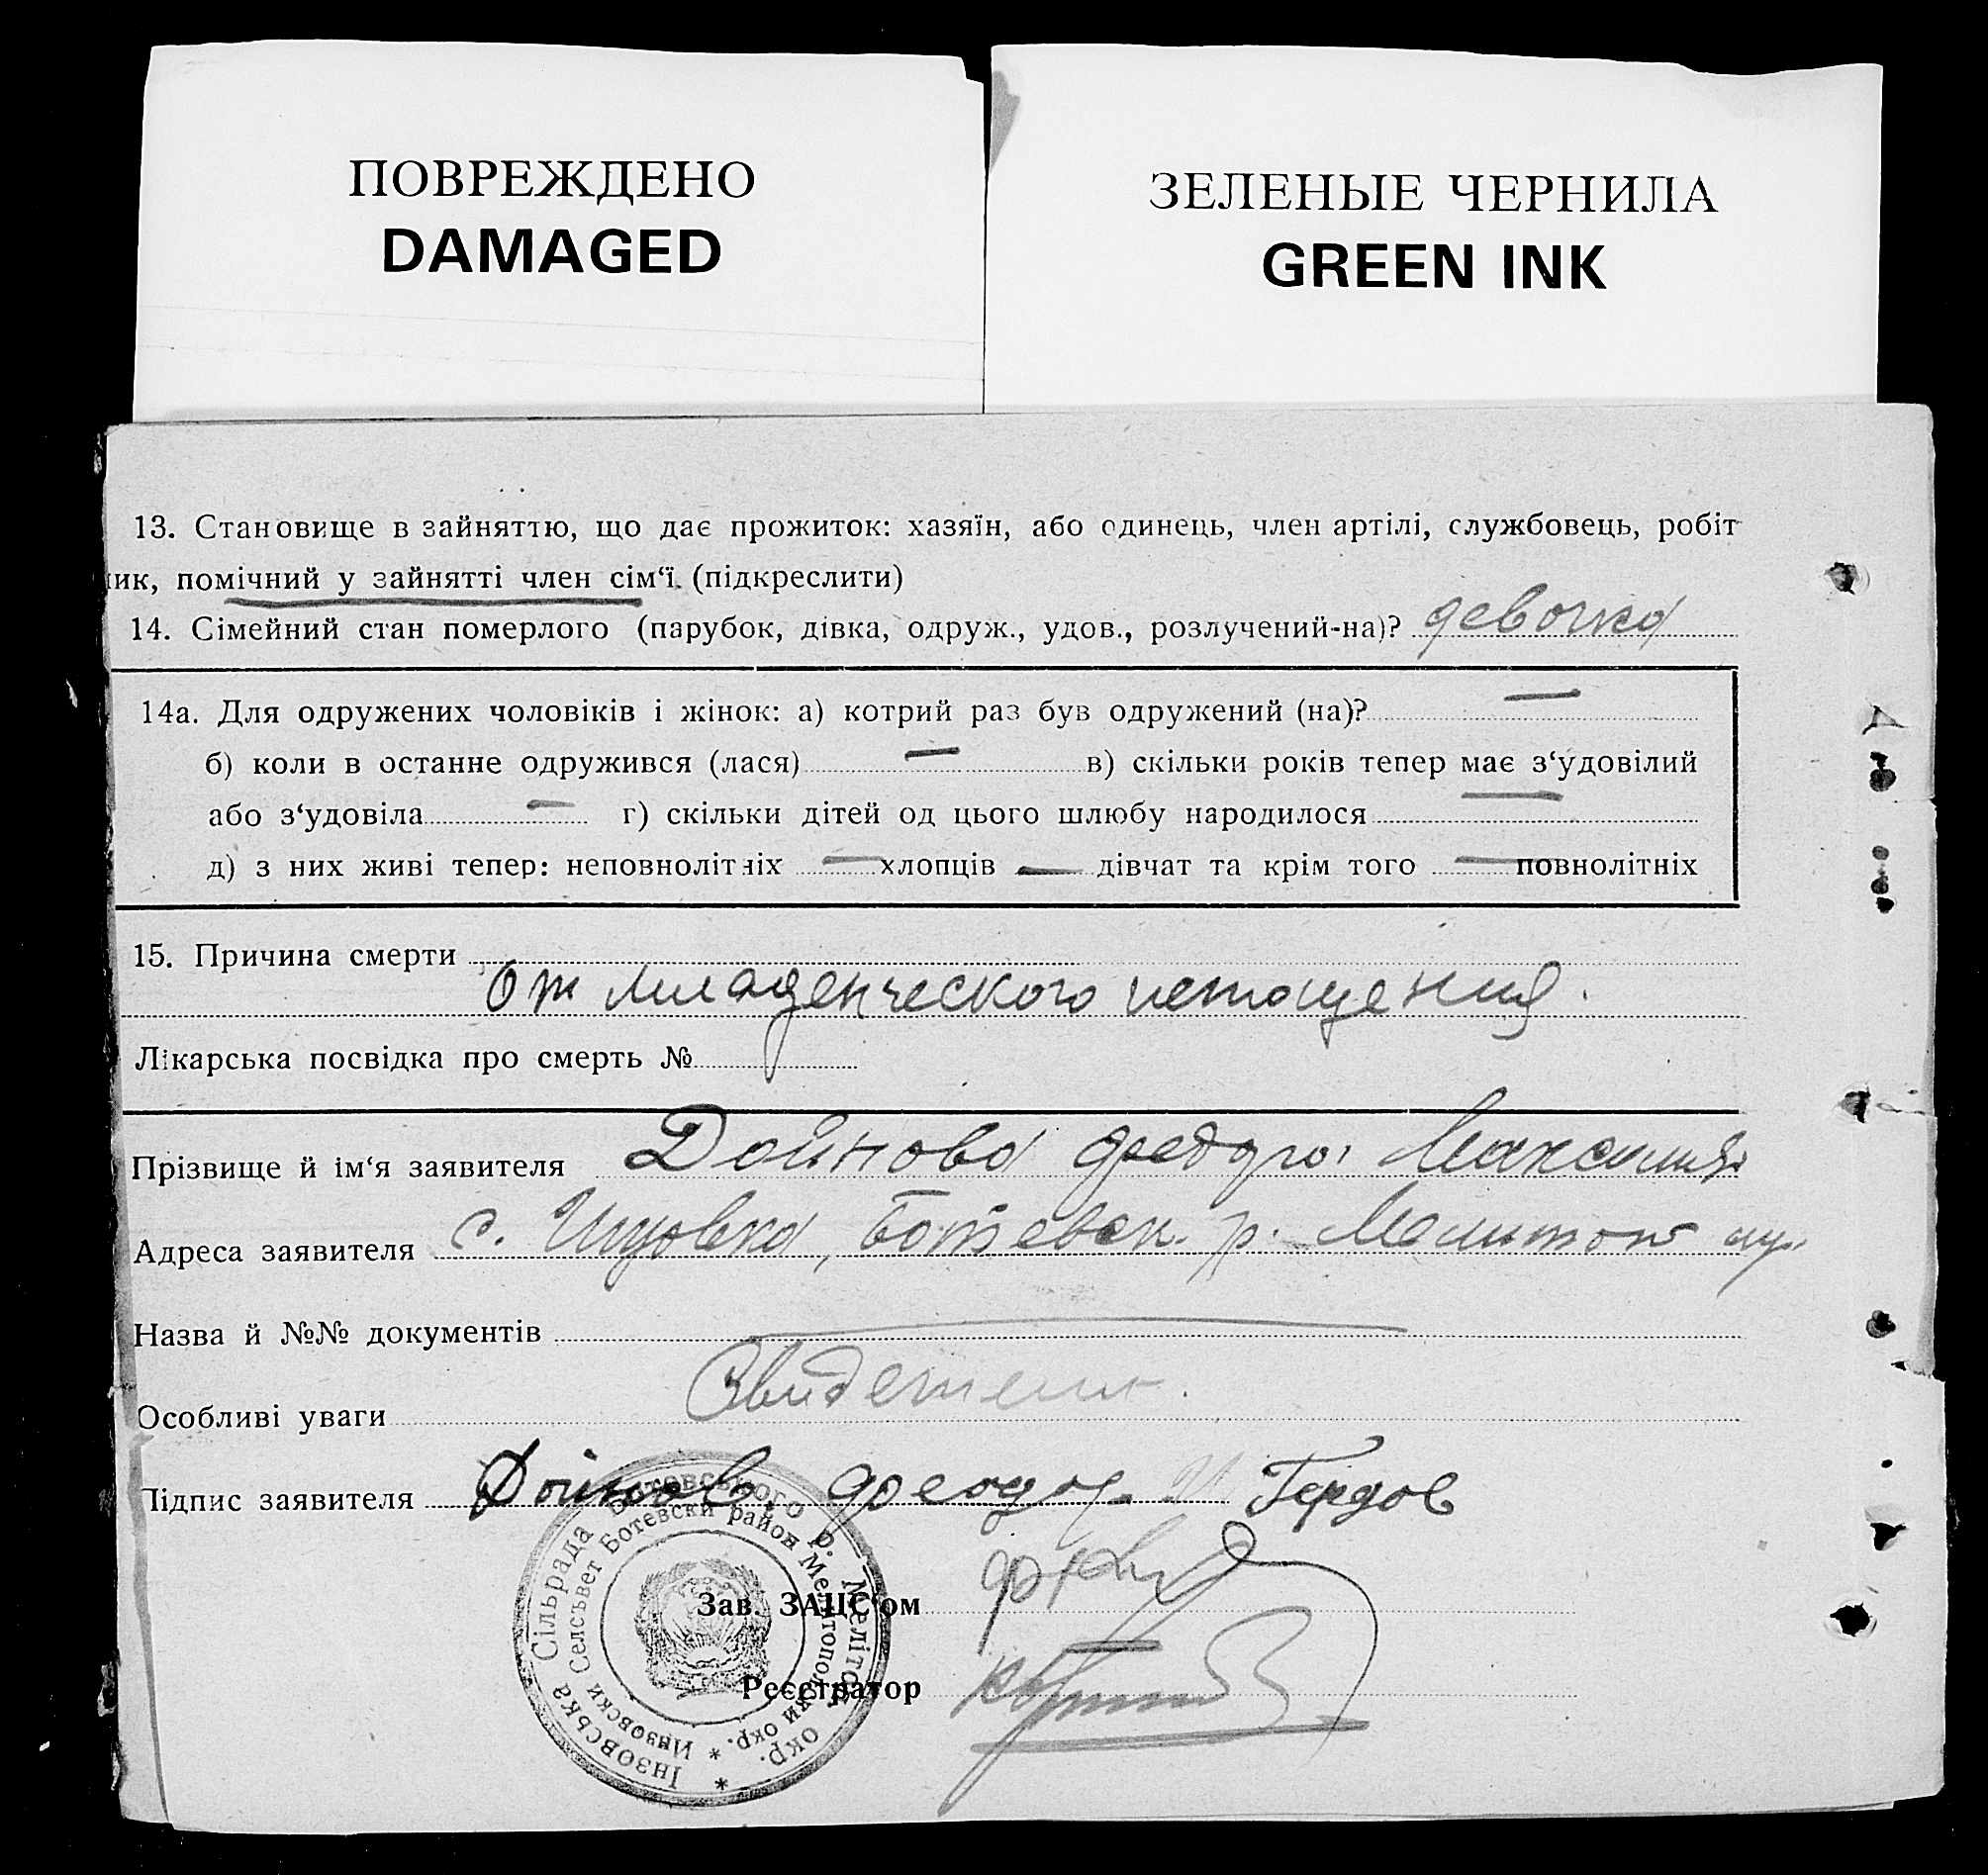 ПОВРЕЖДЕНО
DAMAGED
ЗЕЛЕНЫЕ ЧЕРНИЛА
GREEN INK
13. Становище в зайняттю, що дає прожиток: хазяїн, або одинець, член артілі, службовець, робіт
ик, помічний у зайнятті член сім‘ї. (підкреслити)
14. Сімейний стан померлого (парубок, дівка, одруж., удов., розлучений-на)? девочка
14а. Для одружених чоловіків і жінок: а) котрий раз був одружений (на)? —
б) коли в останне одружився (лася) — в) скільки років тепер має з‘удовілий
або з‘удовіла — г) скільки дітей од цього шлюбу народилося —
д) з них живі тепер: неповнолітніх — хлопців — дівчат та крім того — повнолітніх
15. Причина смерти
От младенческого истощения.
Лікарська посвідка про смерть №
Прізвище й ім‘я заявителя Дойнова
Адреса заявителя с. Ботевск. р. Мелитоп
Назва й №№ документів
Особливі уваги
Підпис заявителя Дойнов Феодор Гердов
Інзовська Сільрада Ботевського р. Меліто окр. *
Инзовски Селсъвет Ботевски район Мелитополски окр. *
Зав. ЗАЦС‘ом
Реєстратор